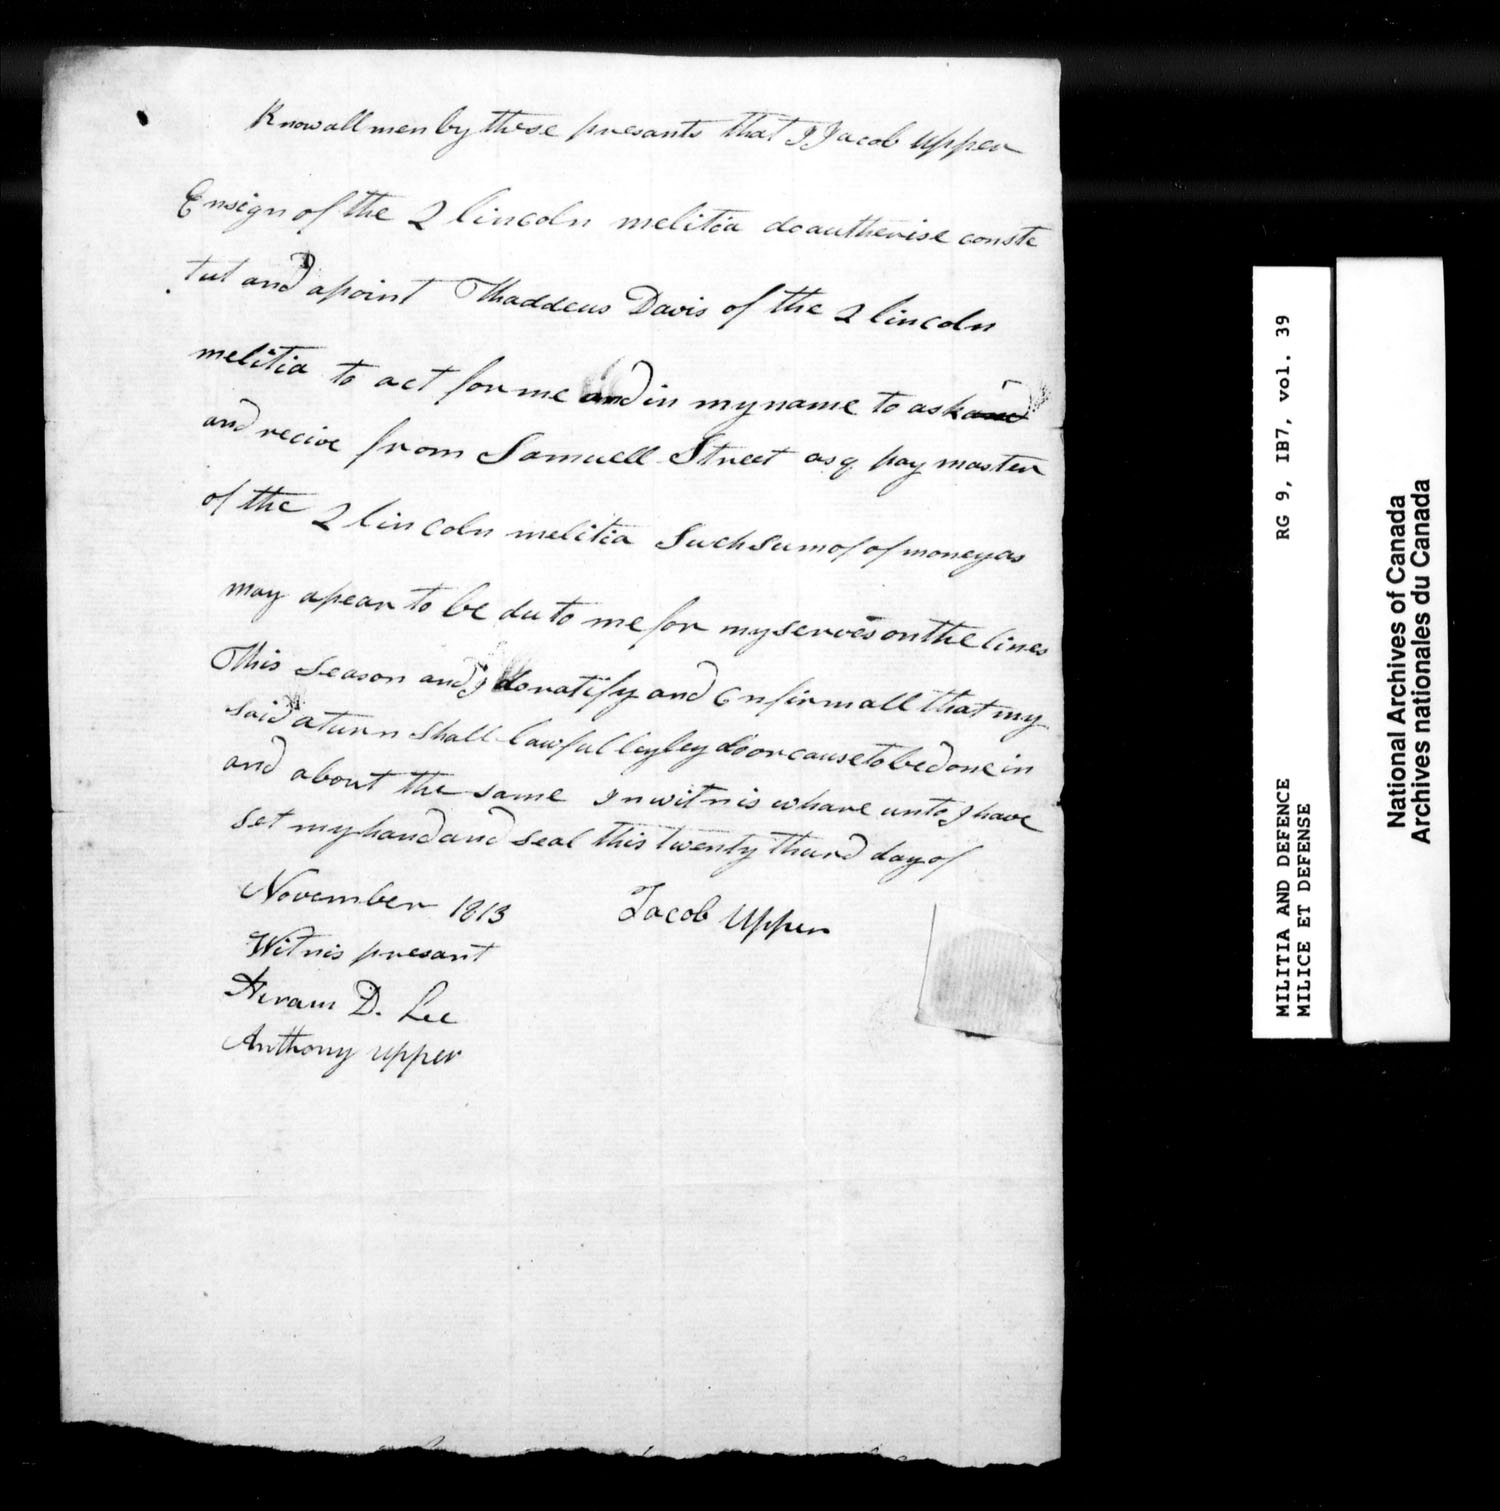 Know all men by these presants that I Jacob Upper
Ensign of the 2 lincoln melitia do autherise conste
tut and apoint Thaddeus Davis of the 2 lincoln
melitia to act for me and in my name to ask and
and recive from Samuell Street asq pay master
of the 2 lincoln melitia Such Sum of of money as
may apear to be du to me for my serves on the lines
This Season and I do ratify and Confirm all that my
said aturn shall lawfulleyley do or cause to be done in
and about the same In witnis whare unto I have
set my hand and seal this twenty thurd day of
November 1813 Jacob Upper
Witnis presant
Hiram D. Lee
Anthony Upper
MILITIA AND DEFENCE RG 9, IB7, vol. 39
MILICE ET DEFENSE
National Archives of Canada
Archives nationales du Canada